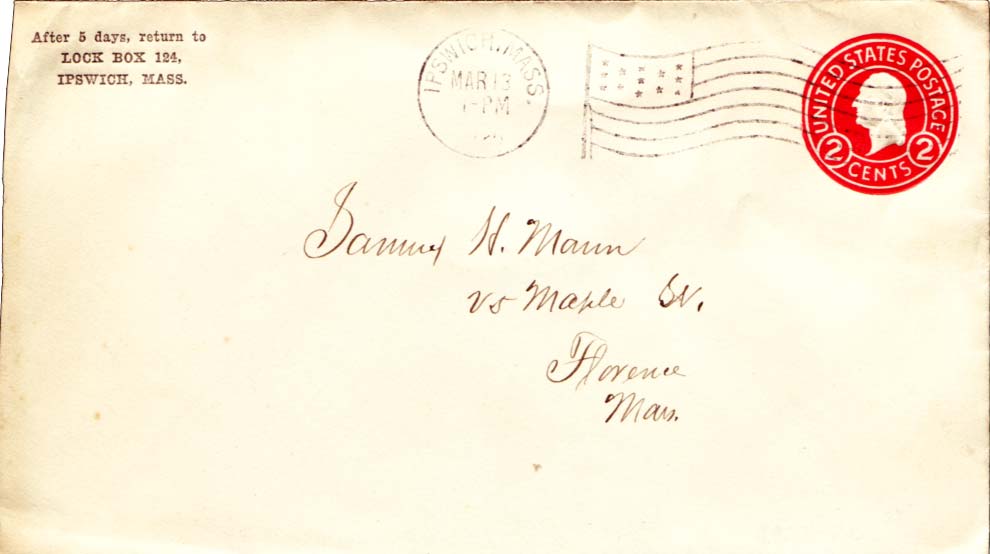 After 5 days, return to
LOCK BOX 124,
IPSWICH, MASS.
IPSWICH, MASS.
MAR 13
-PM
UNITED STATES POSTAGE
2 CENTS 2
H. Mann
Maple St.
Florence
Mass.